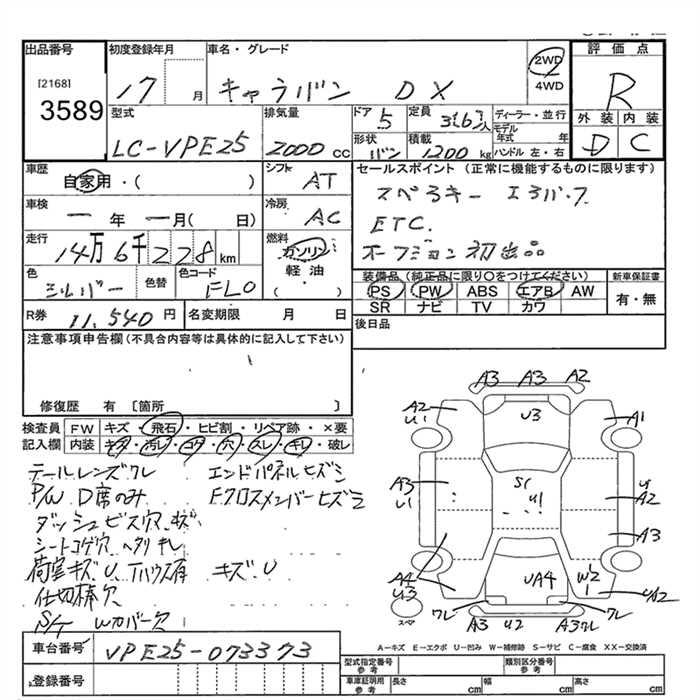 出品番号
[2168]
3589
初度登録年月
17 月
車名・グレード
キャラバン DX
2WD
4WD
評価点
R
外装 内装
D C
型式
LC-VPE25
排気量
2000 cc
ドア
5
定員
3(6)人
形状
バン
積載
1200 kg
ディーラー・並行
モデル年式 年
ハンドル 左・右
車歴
自家用・( )
シフト
AT
車検
一年 一月( 日)
冷房
AC
走行
14万6千228km
燃料
ガソリン
軽油・
( )
色
シルバー
色替
色コード
FL0
セールスポイント(正常に機能するものに限ります)
スペヤキー
ETC.
オークション初出品
装備品(純正品に限り○をつけてください)
PS PW ABS エアB AW
SR ナビ TV カワ
新車保証書
有・無
R券 11,540円
名変期限 月 日
後日品
注意事項申告欄(不具合内容等は具体的に記入して下さい)
修復歴 有〔箇所
検査員記入欄
FW キズ・飛石・ヒビ割・リペア跡・×要
内装 キズ・汚レ・コゲ・穴・スレ・キレ・破レ
テールレンズワレ エンドパネルヒズミ
P/W D席のみ Fクロスメンバーヒズミ
ダッシュビス穴 キズ
シートコゲ穴 ヘタリ キレ
荷室キズ U Tハウス有 キズ U
仕切棒欠
S/T Wカバー欠
A3 A3 A2
A2 U1
U3
A1
A3 U1
S1
U1
U
A2
A3
A4 U3
UA4
W2
UA2
ワレ
ワレ
スペア
A3 U2 A3ワレ
A-キズ E-エクボ U-凹み W-補修跡 S-サビ C-腐食 XX-交換済
車台番号
VPE25-073373
登録番号
型式指定番号 参考
類別区分番号 参考
車庫証明用 参考
長さ cm
幅 cm
高さ cm